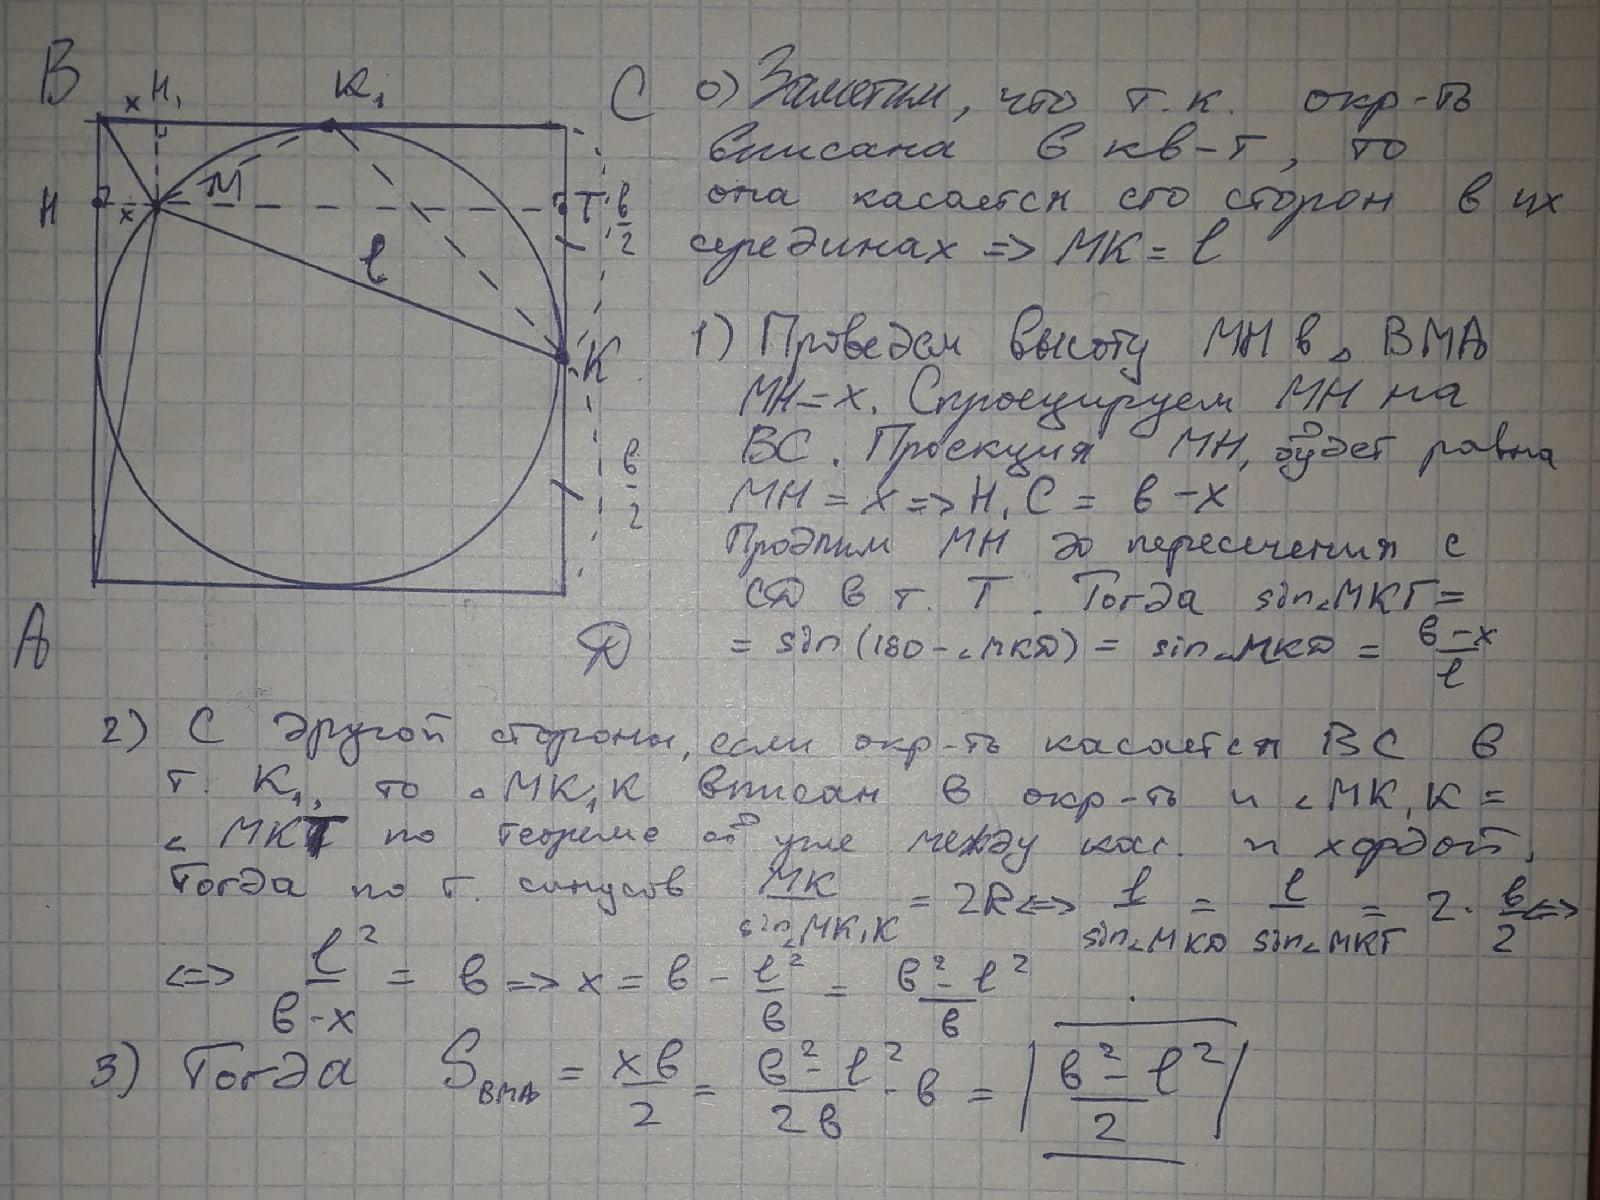 B x H₁ K₁ C
H x M T b/2
l
K
b/2
A D
0) Заметим, что т.к. окр-ть
вписана в кв-т, то
она касается его сторон в их
серединах => MK = l
1) Проведем высоту MH в △ BMA
MH = x. Спроецируем MH на
BC. Проекция MH, будет равна
MH = x => H₁C = b - x
Продлим MH до пересечения с
CD в т. T. Тогда sin∠MKT =
= sin(180 - ∠MKD) = sin∠MKD = (b - x)/l
2) С другой стороны, если окр-ть касается BC в
т. K₁, то △MK₁K вписан в окр-ть и ∠MK₁K =
∠ MKT по теореме об угле между кас. и хордой.
Тогда по т. синусов MK/sin∠MK₁K = 2R <=> l/sin∠MKD = l/sin∠MKT = 2 · b/2 <=>
<=> l²/(b - x) = b => x = b - l²/b = (b² - l²)/b
3) Тогда S_BMA = xb/2 = (b² - l²)/2b · b = |(b² - l²)/2|